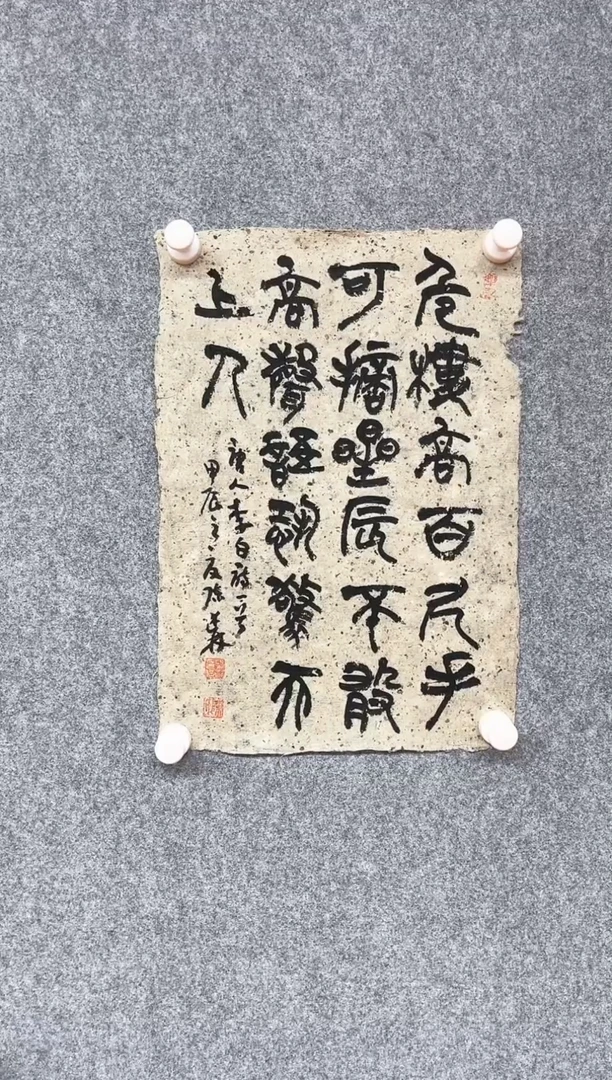 危樓高百尺手
可摘星辰不敢
高聲語恐驚天
上人
唐人李白詩一首
甲辰之夏